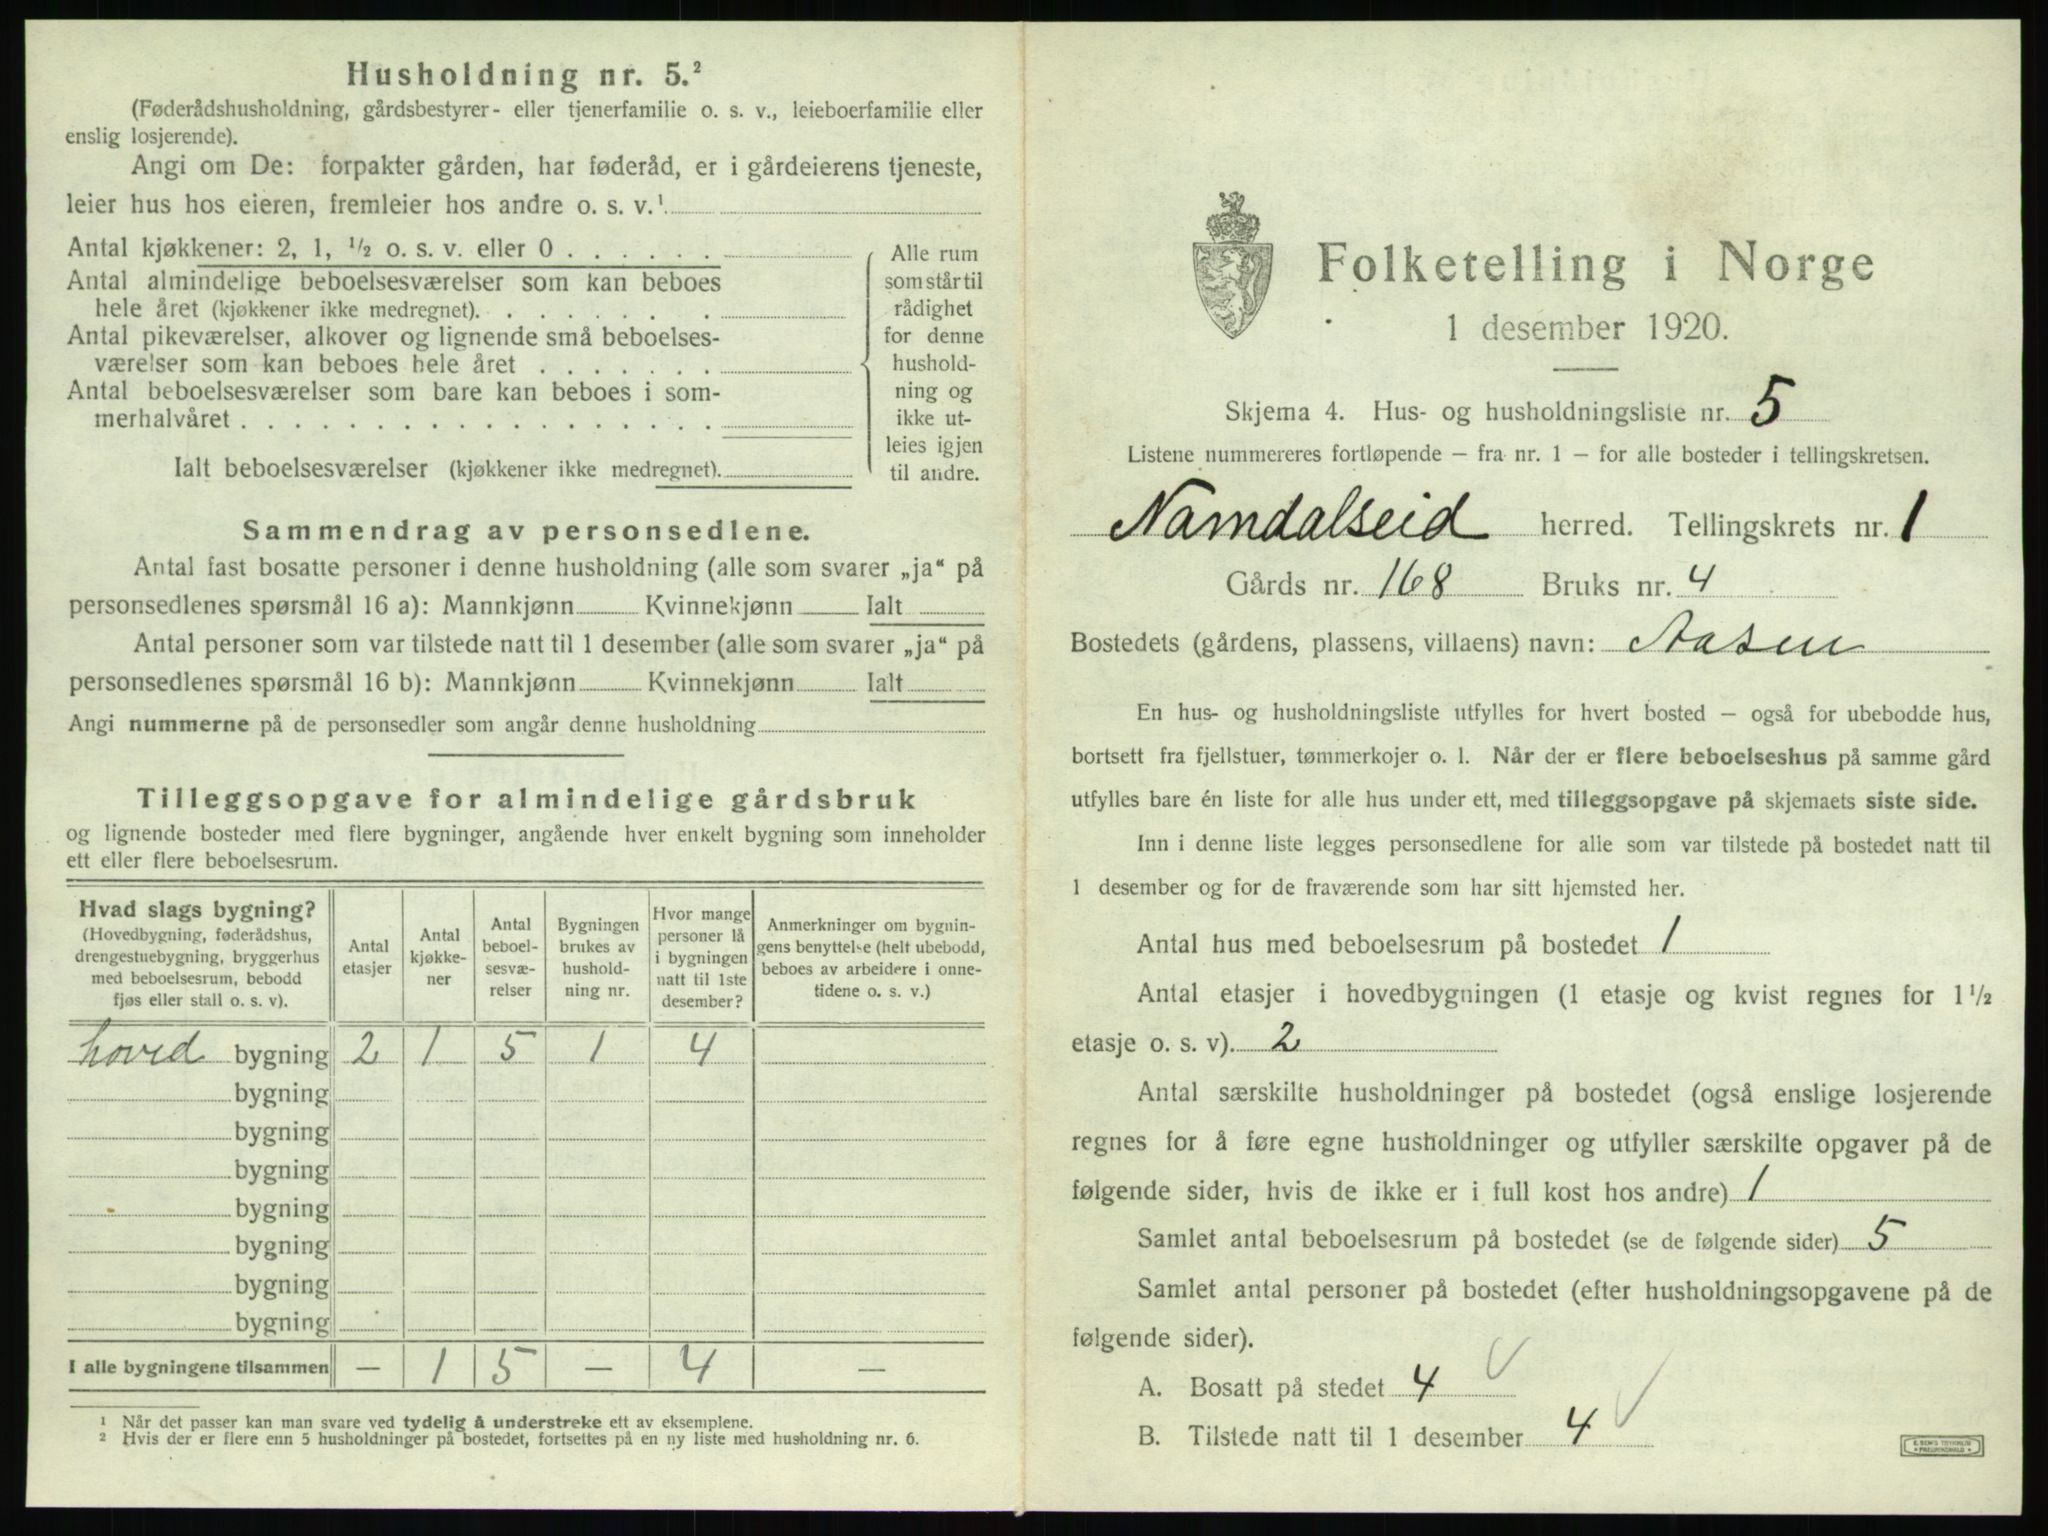 Husholdning nr. 5.²
(Føderådshusholdning, gårdsbestyrer- eller tjenerfamilie o. s. v., leieboerfamilie eller
enslig losjerende).
Angi om De: forpakter gården, har føderåd, er i gårdeierens tjeneste,
leier hus hos eieren, fremleier hos andre o. s. v.¹
Antal kjøkkener: 2, 1, ½ o. s. v. eller 0 . . . . . .
Antal almindelige beboelsesværelser som kan beboes
hele året (kjøkkener ikke medregnet). . . . . . . .
Antal pikeværelser, alkover og lignende små beboelses-
værelser som kan beboes hele året . . . . . . .
Antal beboelsesværelser som bare kan beboes i som-
merhalvåret . . . . . . . . . . . . . . . . . .
Ialt beboelsesværelser (kjøkkener ikke medregnet).
Alle rum
som står til
rådighet
for denne
hushold-
ning og
ikke ut-
leies igjen
til andre.
Sammendrag av personsedlene.
Antal fast bosatte personer i denne husholdning (alle som svarer „ja“ på
personsedlenes spørsmål 16 a): Mannkjønn Kvinnekjønn Ialt
Antal personer som var tilstede natt til 1 desember (alle som svarer „ja“ på
personsedlenes spørsmål 16 b): Mannkjønn Kvinnekjønn Ialt
Angi nummerne på de personsedler som angår denne husholdning
Tilleggsopgave for almindelige gårdsbruk
og lignende bosteder med flere bygninger, angående hver enkelt bygning som inneholder
ett eller flere beboelsesrum.
Hvad slags bygning?
(Hovedbygning, føderådshus,
drengestuebygning, bryggerhus
med beboelsesrum, bebodd
fjøs eller stall o. s. v).
Antal
etasjer
Antal
kjøkke-
ner
Antal
beboel-
sesvæ-
relser
Bygningen
brukes av
hushold-
ning nr.
Hvor mange
personer lå
i bygningen
natt til 1ste
desember?
Anmerkninger om bygnin-
gens benyttelse (helt ubebodd,
beboes av arbeidere i onne-
tidene o. s. v.)
hoved bygning 2 1 5 1 4
bygning
bygning
bygning
bygning
bygning
bygning
bygning
I alle bygningene tilsammen — 1 5 — 4 —
¹ Når det passer kan man svare ved tydelig å understreke ett av eksemplene.
² Hvis der er flere enn 5 husholdninger på bostedet, fortsettes på en ny liste med husholdning nr. 6.
Folketelling i Norge
1 desember 1920.
Skjema 4. Hus- og husholdningsliste nr. 5
Listene nummereres fortløpende — fra nr. 1 — for alle bosteder i tellingskretsen.
Namdalseid herred. Tellingskrets nr. 1
Gårds nr. 168 Bruks nr. 4
Bostedets (gårdens, plassens, villaens) navn: Aasen
En hus- og husholdningsliste utfylles for hvert bosted — også for ubebodde hus,
bortsett fra fjellstuer, tømmerkojer o. l. Når der er flere beboelseshus på samme gård
utfylles bare én liste for alle hus under ett, med tilleggsopgave på skjemaets siste side.
Inn i denne liste legges personsedlene for alle som var tilstede på bostedet natt til
1 desember og for de fraværende som har sitt hjemsted her.
Antal hus med beboelsesrum på bostedet 1
Antal etasjer i hovedbygningen (1 etasje og kvist regnes for 1½
etasje o. s. v). 2
Antal særskilte husholdninger på bostedet (også enslige losjerende
regnes for å føre egne husholdninger og utfyller særskilte opgaver på de
følgende sider, hvis de ikke er i full kost hos andre) 1
Samlet antal beboelsesrum på bostedet (se de følgende sider) 5
Samlet antal personer på bostedet (efter husholdningsopgavene på de
følgende sider).
A. Bosatt på stedet 4
B. Tilstede natt til 1 desember 4